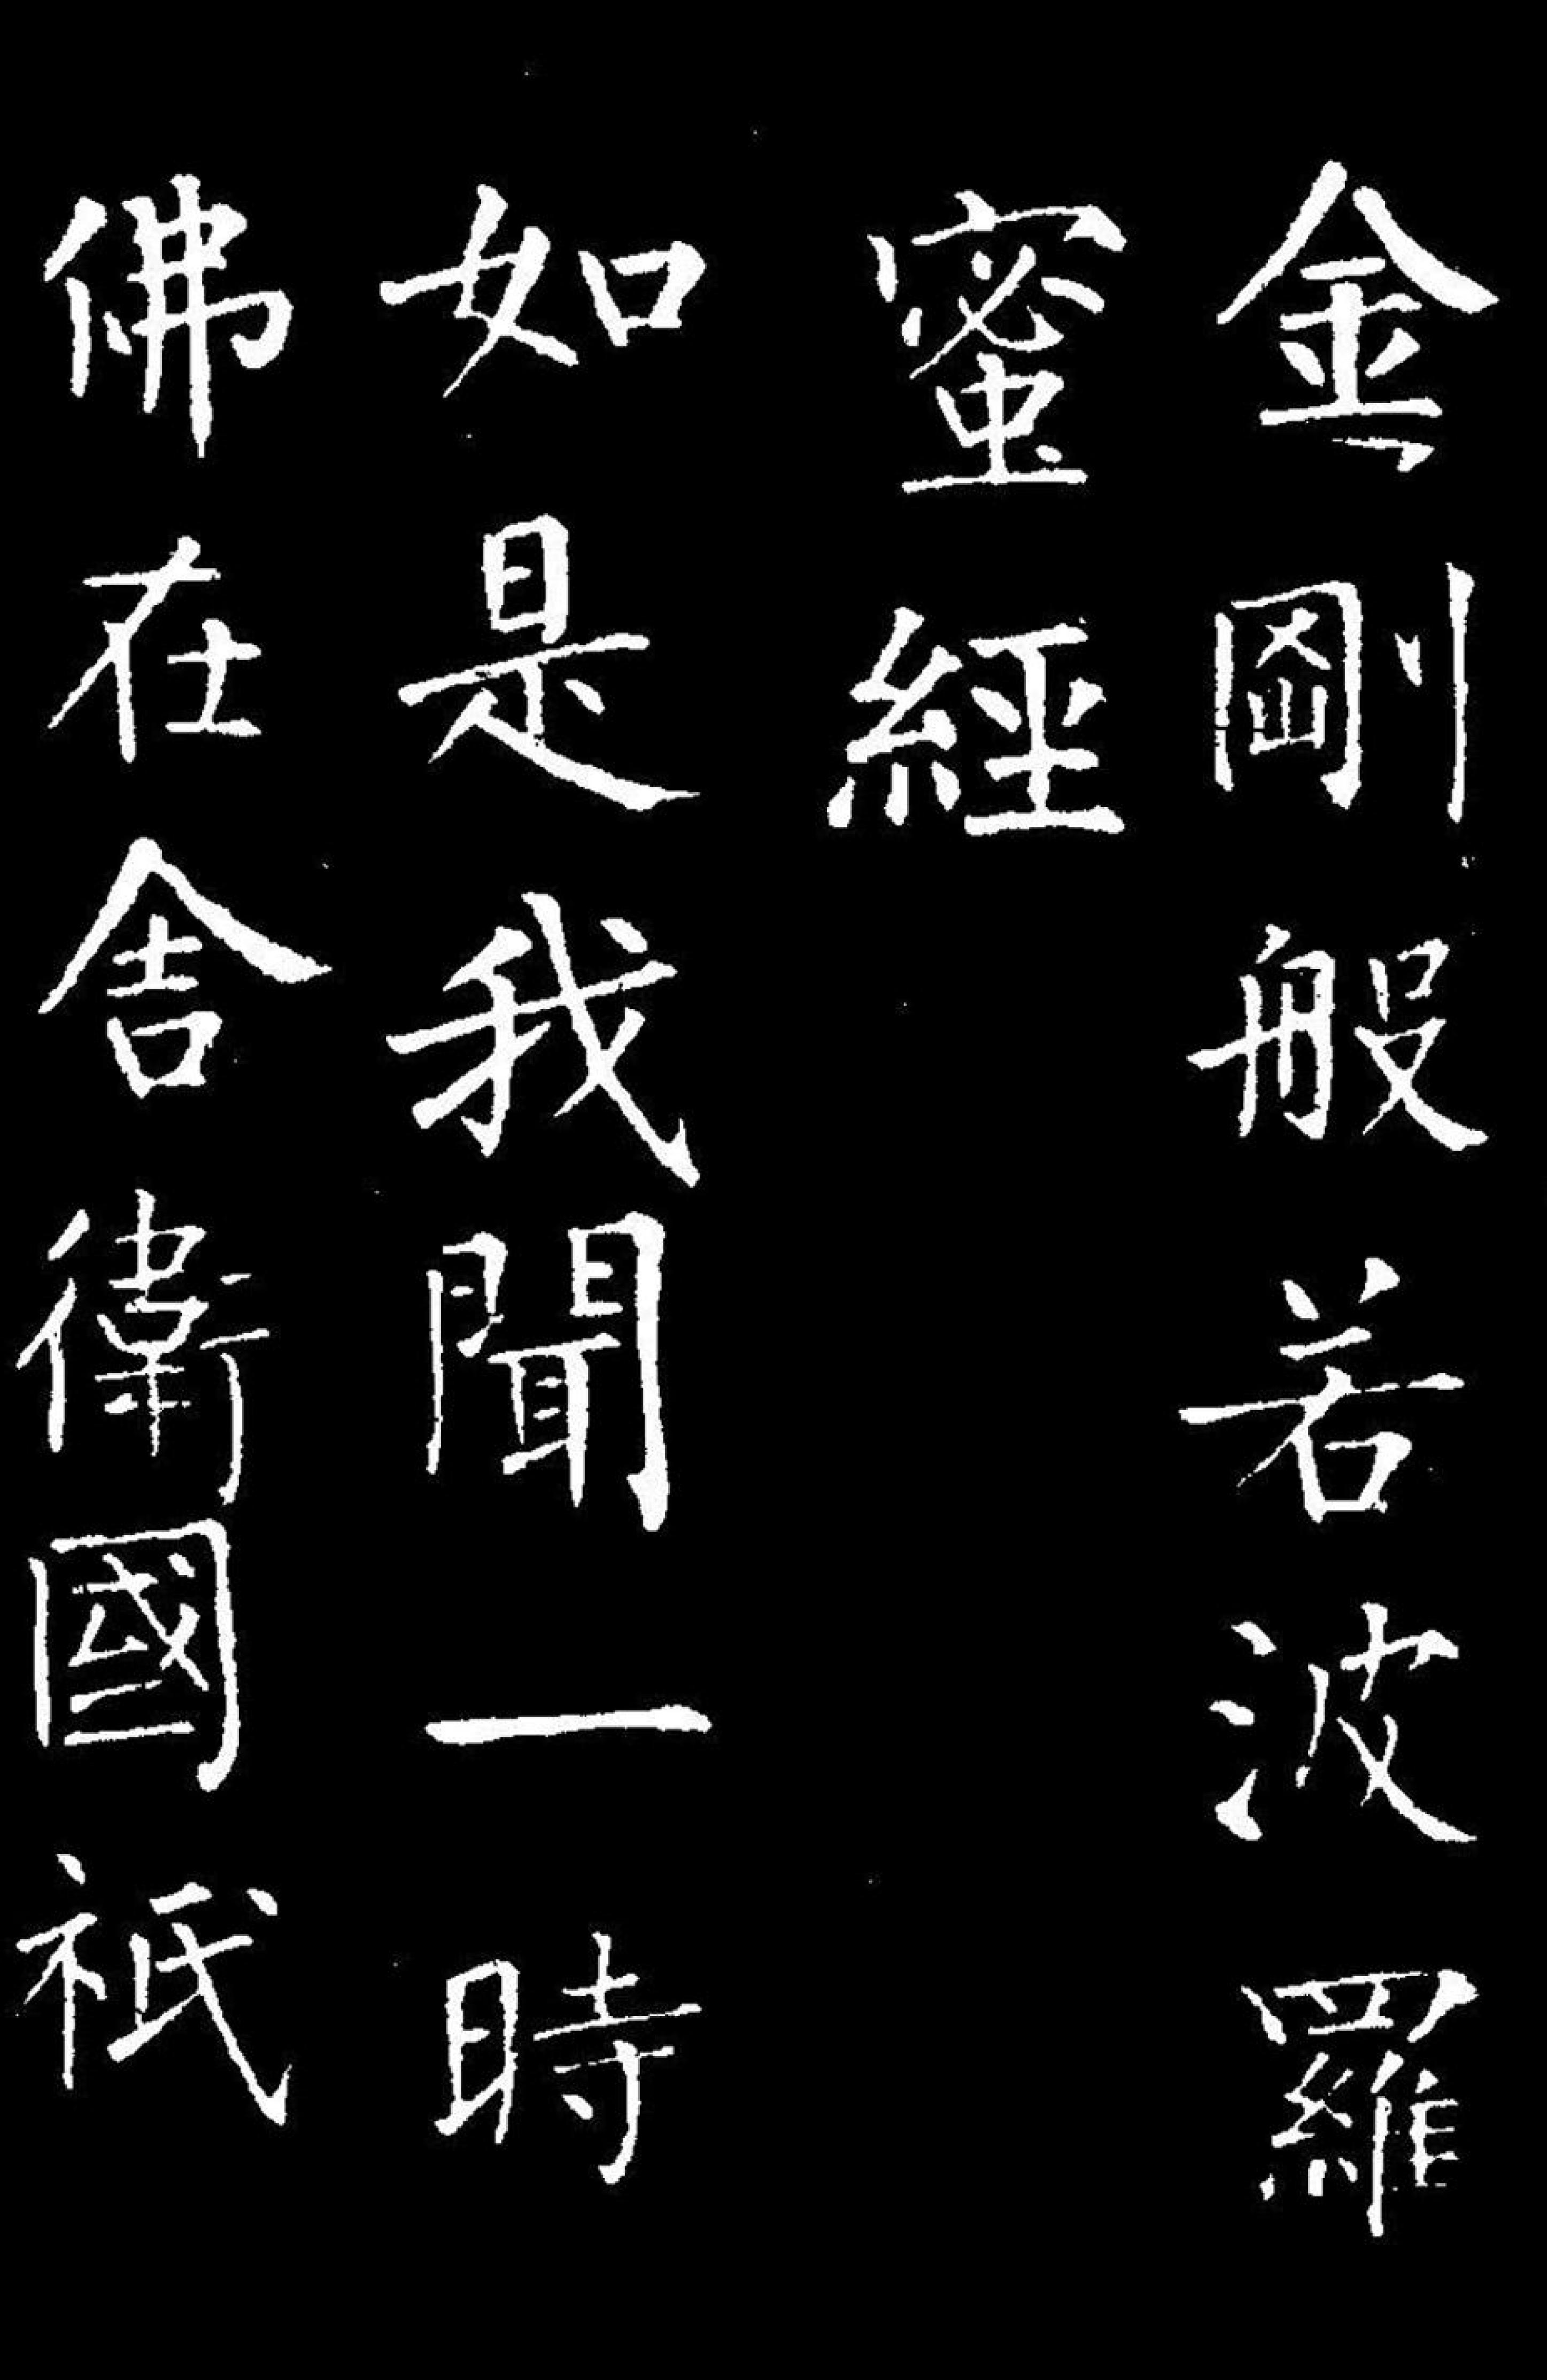 金剛般若波羅
蜜經
如是我聞一時
佛在舎衛國祇